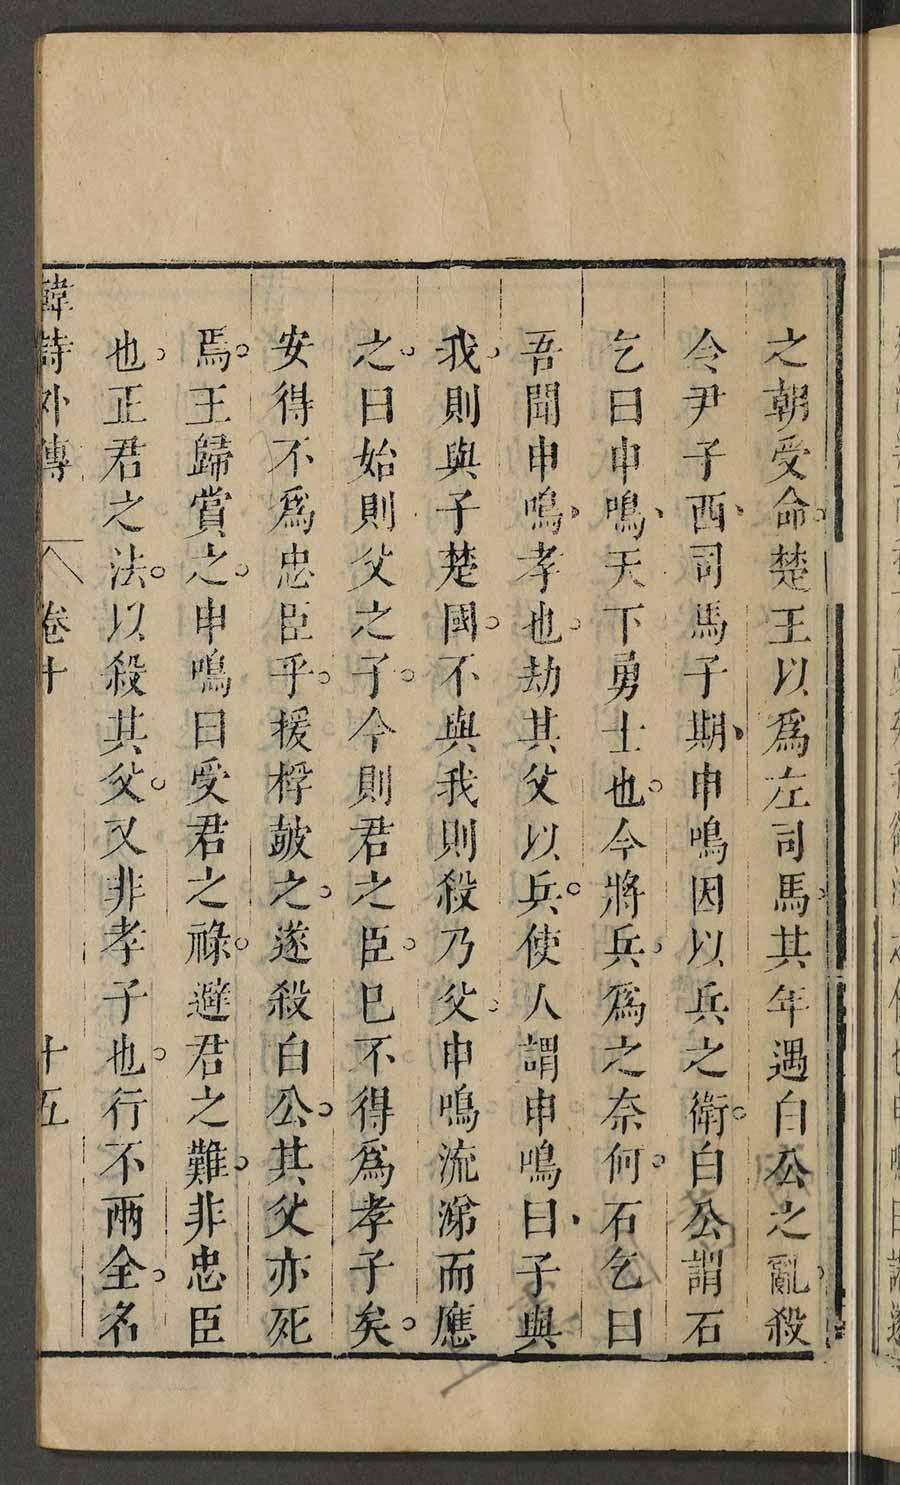 之朝受命。楚王以爲左司馬。其年遇白公之亂。殺
令尹子西、司馬子期、申鳴因以兵之衛。白公謂石
乞曰申鳴、天下勇士也。今將兵。爲之奈何。石乞曰
吾聞申鳴、孝也。劫其父以兵。使人謂申鳴曰、子與
我。則與子楚國。不與我則殺乃父。申鳴流涕而應
之。曰始則父之子。今則君之臣。已不得爲孝子矣。
安得不爲忠臣乎。援桴鼓之。遂殺白公。其父亦死
焉。王歸賞之。申鳴曰受君之祿。避君之難。非忠臣
也。正君之法。以殺其父。又非孝子也。行不兩全。名
韓詩外傳 卷十 十五